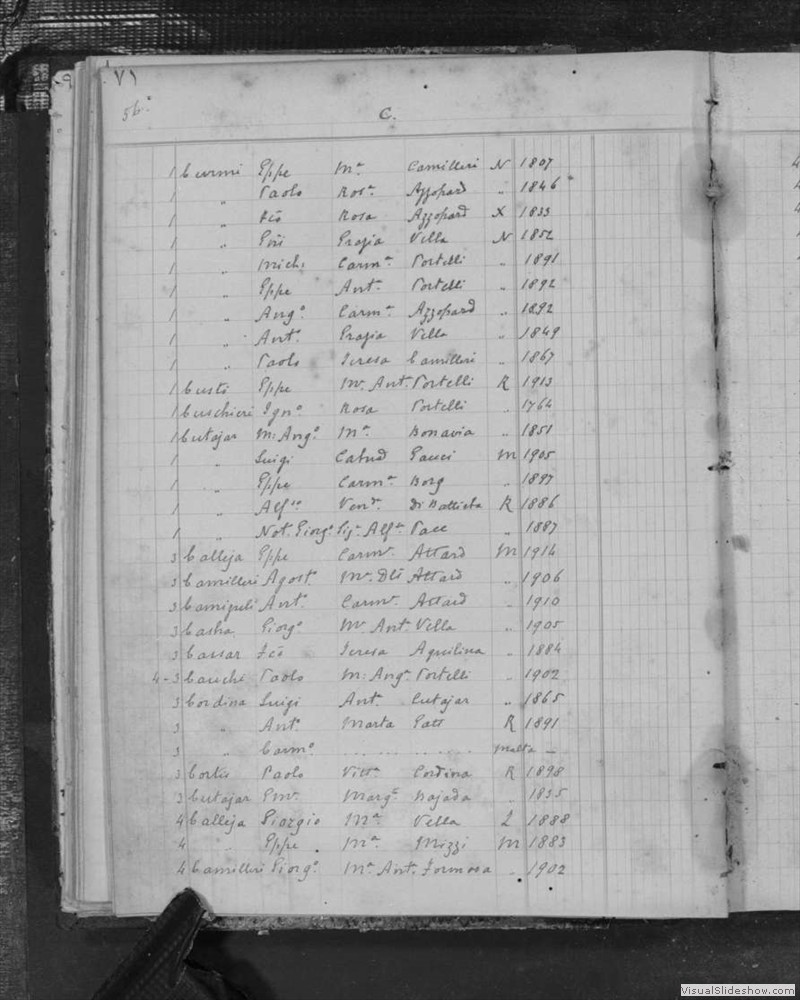 71
56.
C.
1 Curmi Eppe Ma. Camilleri N 1807
1 " Paolo Rosa. Azzopard " 1846
1 " Fco Rosa Azzopard X 1833
1 " Grazia Vella N 1852
1 " Mich: Carma. Portelli " 1891
1 " Eppe Ant. Portelli " 1892
1 " Ango. Carma. Azzopard " 1892
1 " Ant. Grazia Vella " 1849
1 " Paolo Teresa Camilleri " 1867
1 Custò Eppe Ma. Ant. Portelli R 1913
1 Cuschieri Igno. Rosa Portelli " 1764
1 Cutajar M: Ango. Ma. Bonavia " 1851
1 " Luigi Gauci M 1905
1 " Eppe Carma. Borg " 1897
1 " Alfso Vend. Di Battista R 1886
1 " Not. Giorgo. Alfa. Pace " 1887
3 Calleja Eppe Carma. Attard M 1914
3 Camilleri Agost. Ma. Attard " 1906
3 Ant. Carma. Attard " 1910
3 Casha Giorgo. Ma. Ant. Vella " 1905
3 Cassar Fco Teresa Aquilina " 1884
4-3 Cauchi Paolo M. Anga. Portelli " 1902
3 Cordina Luigi Ant. Cutajar " 1865
3 " Ant. Marta Gatt R 1891
3 " Carmo. .......... Malta —
3 Cortis Paolo Vitta. Cordina R 1898
3 Cutajar Em. Marga. Bajada " 1835
4 Calleja Giorgio Ma. Vella L 1888
4 " Eppe Ma. Mizzi M 1883
4 Camilleri Giorgo. Ma. Ant. Formosa " 1902
VisualSlideshow.com